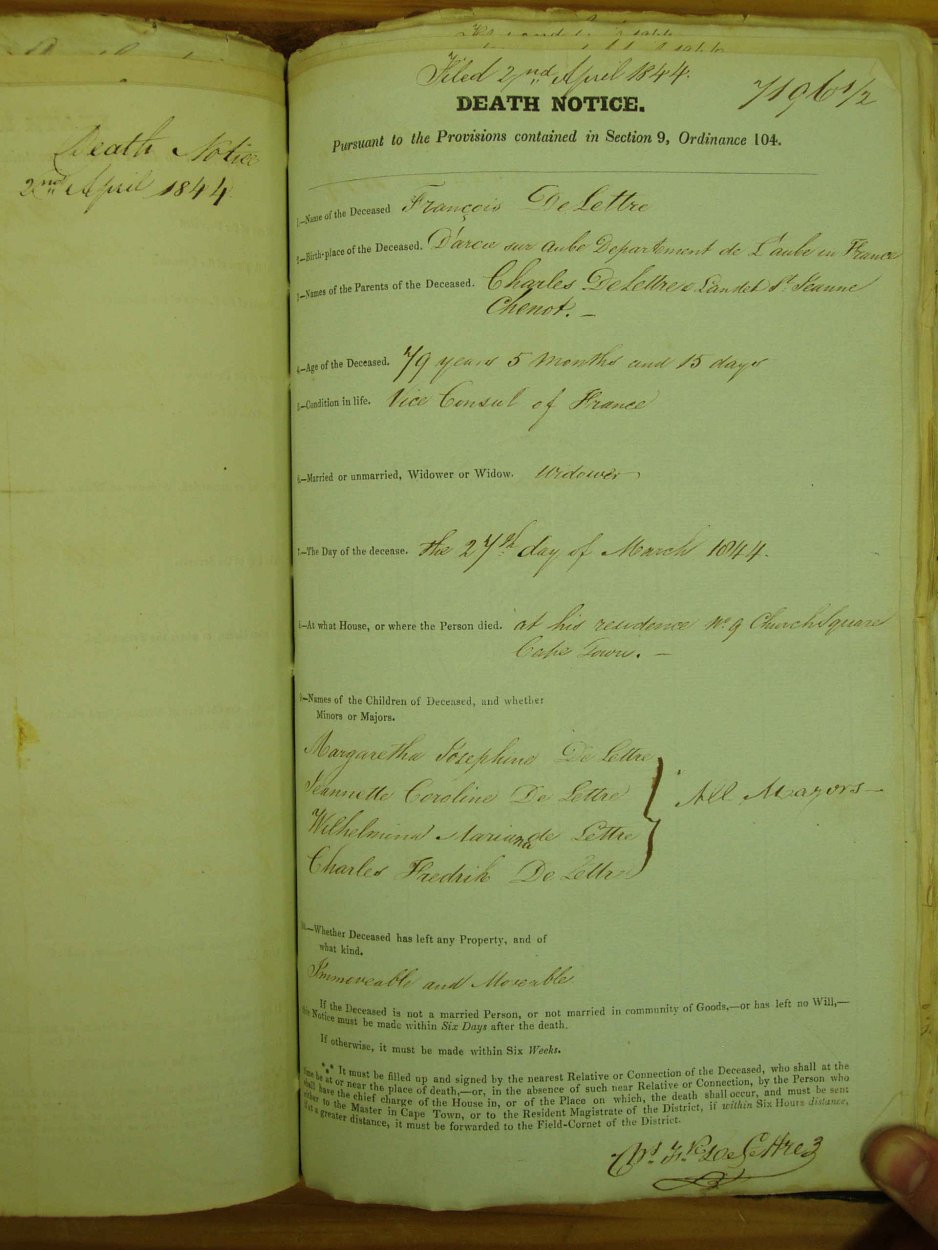 Death Notice
2nd April 1844
Filed 2nd April 1844.
7196 1/2
DEATH NOTICE.
Pursuant to the Provisions contained in Section 9, Ordinance 104.
1.—Name of the Deceased François De Lettre
2.—Birth-place of the Deceased. D'arcis sur aube Departement de L'aube in France
3.—Names of the Parents of the Deceased. Charles De Lettre & Jeanne
Chenot. —
4.—Age of the Deceased. 79 years 5 months and 15 days
5.—Condition in life. Vice Consul of France
6.—Married or unmarried, Widower or Widow. Widower
7.—The Day of the decease. the 27th day of March 1844.
8.—At what House, or where the Person died. at his residence No. 9 Church Square
Cape Town. —
9.—Names of the Children of Deceased, and whether
Minors or Majors.
Margaretha Josephine De Lettre
Jeannette Coroline De Lettre
Wilhelmina Marianna de Lettre
Charles Fredrik De Lettre
All Mayors —
10.—Whether Deceased has left any Property, and of
what kind.
Immoveable and Moveable
If the Deceased is not a married Person, or not married in community of Goods,—or has left no Will,—
this Notice must be made within Six Days after the death.
If otherwise, it must be made within Six Weeks.
*** It must be filled up and signed by the nearest Relative or Connection of the Deceased, who shall at the
time be at or near the place of death,—or, in the absence of such near Relative or Connection, by the Person who
shall have the chief charge of the House in, or of the Place on which, the death shall occur, and must be sent
either to the Master in Cape Town, or to the Resident Magistrate of the District, if within Six Hours distance,
if at a greater distance, it must be forwarded to the Field-Cornet of the District.
Chs. Fk. De Lettre